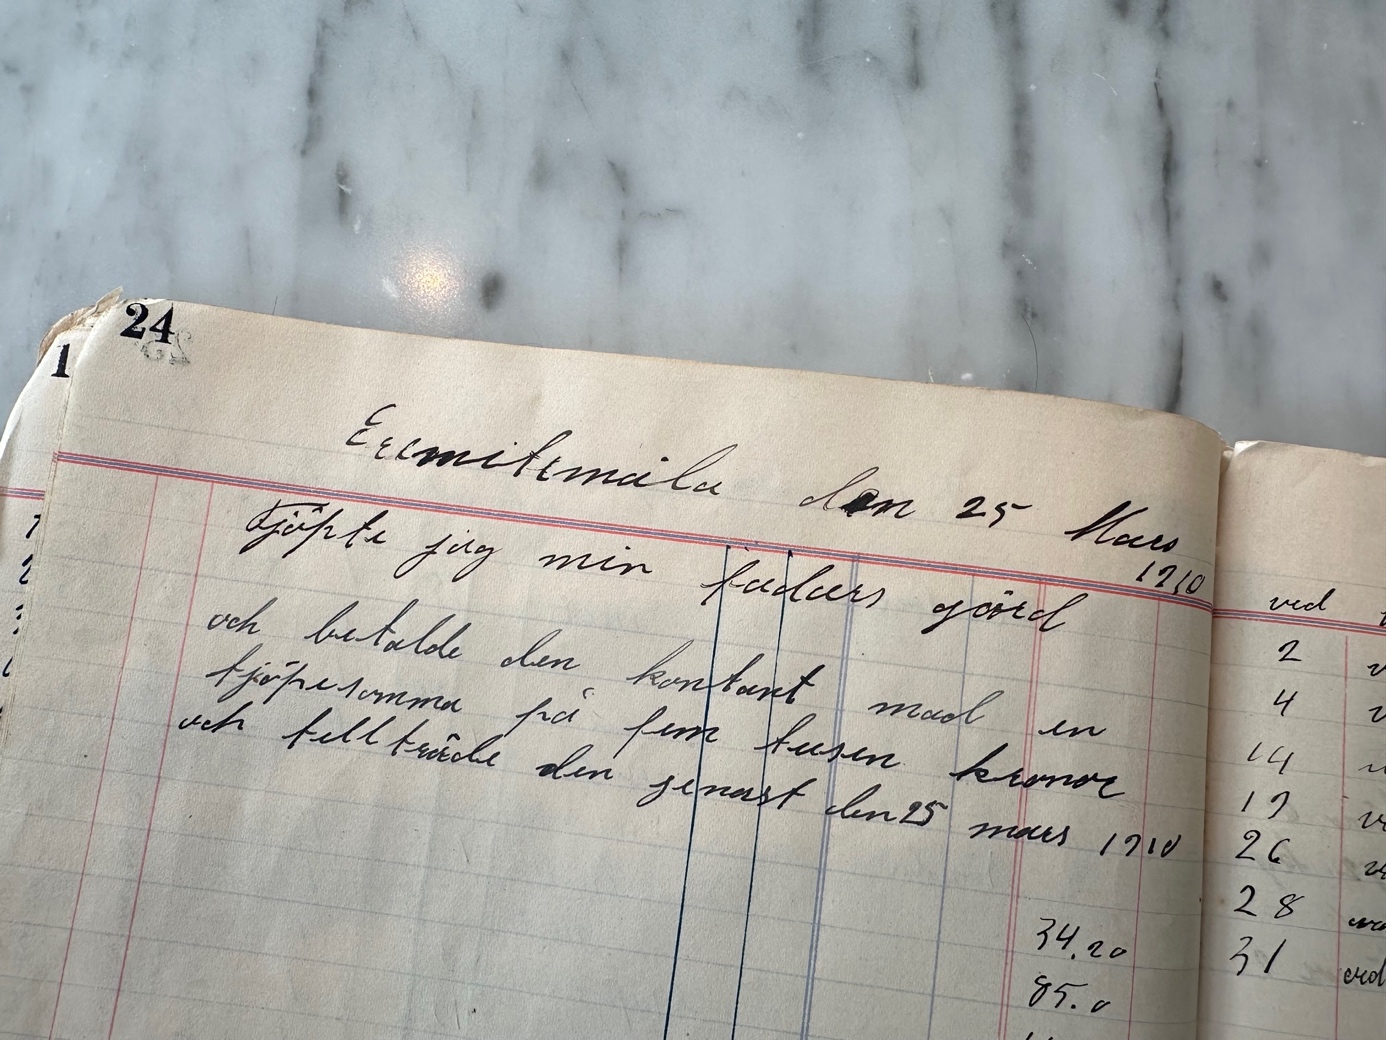 24
1
Eremitemåla den 25 Mars
1910
Tjöpte jag min fadars gård
och betalde den kontant mad en
tjöpesomma på fem tusen kronor
och tillträde den genast den 25 mars 1910
34.20
85.0
ved
2
4
14
19
26
28
31